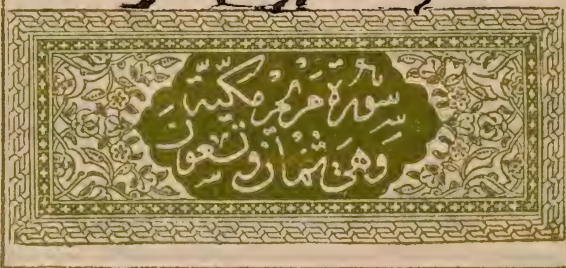 سُورَةُ مَرْيَمَ مَكِّيَّةٌ
وَهِيَ ثَمَانٍ وَتِسْعُونَ